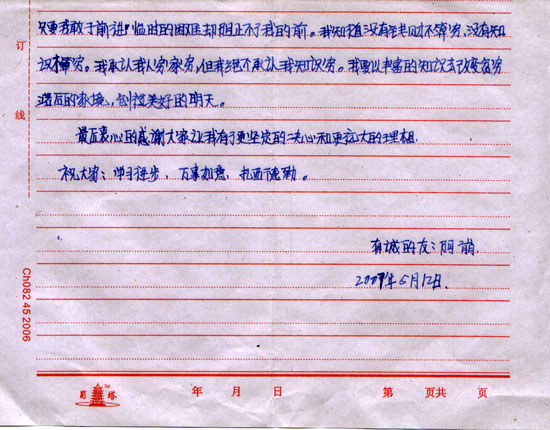 只要勇敢于前进"临时的困难却阻止不了我的前。我知道没有钱财不算穷，没有知
识才算穷。我承认我人穷家穷，但我绝不承认我知识穷。我要以丰富的知识去改变贫穷
落后的家境，创造美好的明天。
最后衷心的感谢大家让我有了更坚定的决心和更远大的理想
祝大家：学习进步，万事如意，扎西德勒。
有诚的友：阳萌
2009年5月12日.
订
线
Ch082 45 2006
蜀塔 年 月 日 第 页共 页